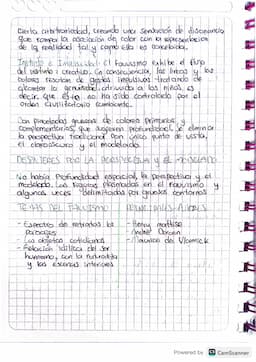 cierta arbitrariedad, creando una sensación de discordancia
que rompa la asociación de color con la representación
de la realidad tal y como ella es concebida.
Instinto e Inmediatez: El fauvismo exhibe el flujo
del instinto creativo. En consecuencia, las líneas y los
colores nacían de gestos impulsivos tratando de
alcanzar la genuinidad atribuida a los niños, es
decir, que esto no ha sido controlado por el
orden civilizatorio
Con pinceladas gruesas de colores primarios y
complementarios, que sugieren profundidad, se eliminar
la perspectiva tradicional con único punto de vista,
el claroscuro y el modelado.
DESINTERÉS POR LA PERSPECTIVA Y EL MODELADO
No había Profundidad espacial, la perspectiva y el
modelado. Las figuras planteadas en el fauvismo y
algunas veces delimitadas por gruesos contornos
TEMAS DEL FAUVISMO
- Espectro de retratos
paisajes
- Los objetos cotidianos
- Relación idílica del ser
humano, con la naturaleza
y los escenas interiores
PRINCIPALES
- Henry mattise
- André Derain
- Maurice de Vlamick
Powered by CamScanner